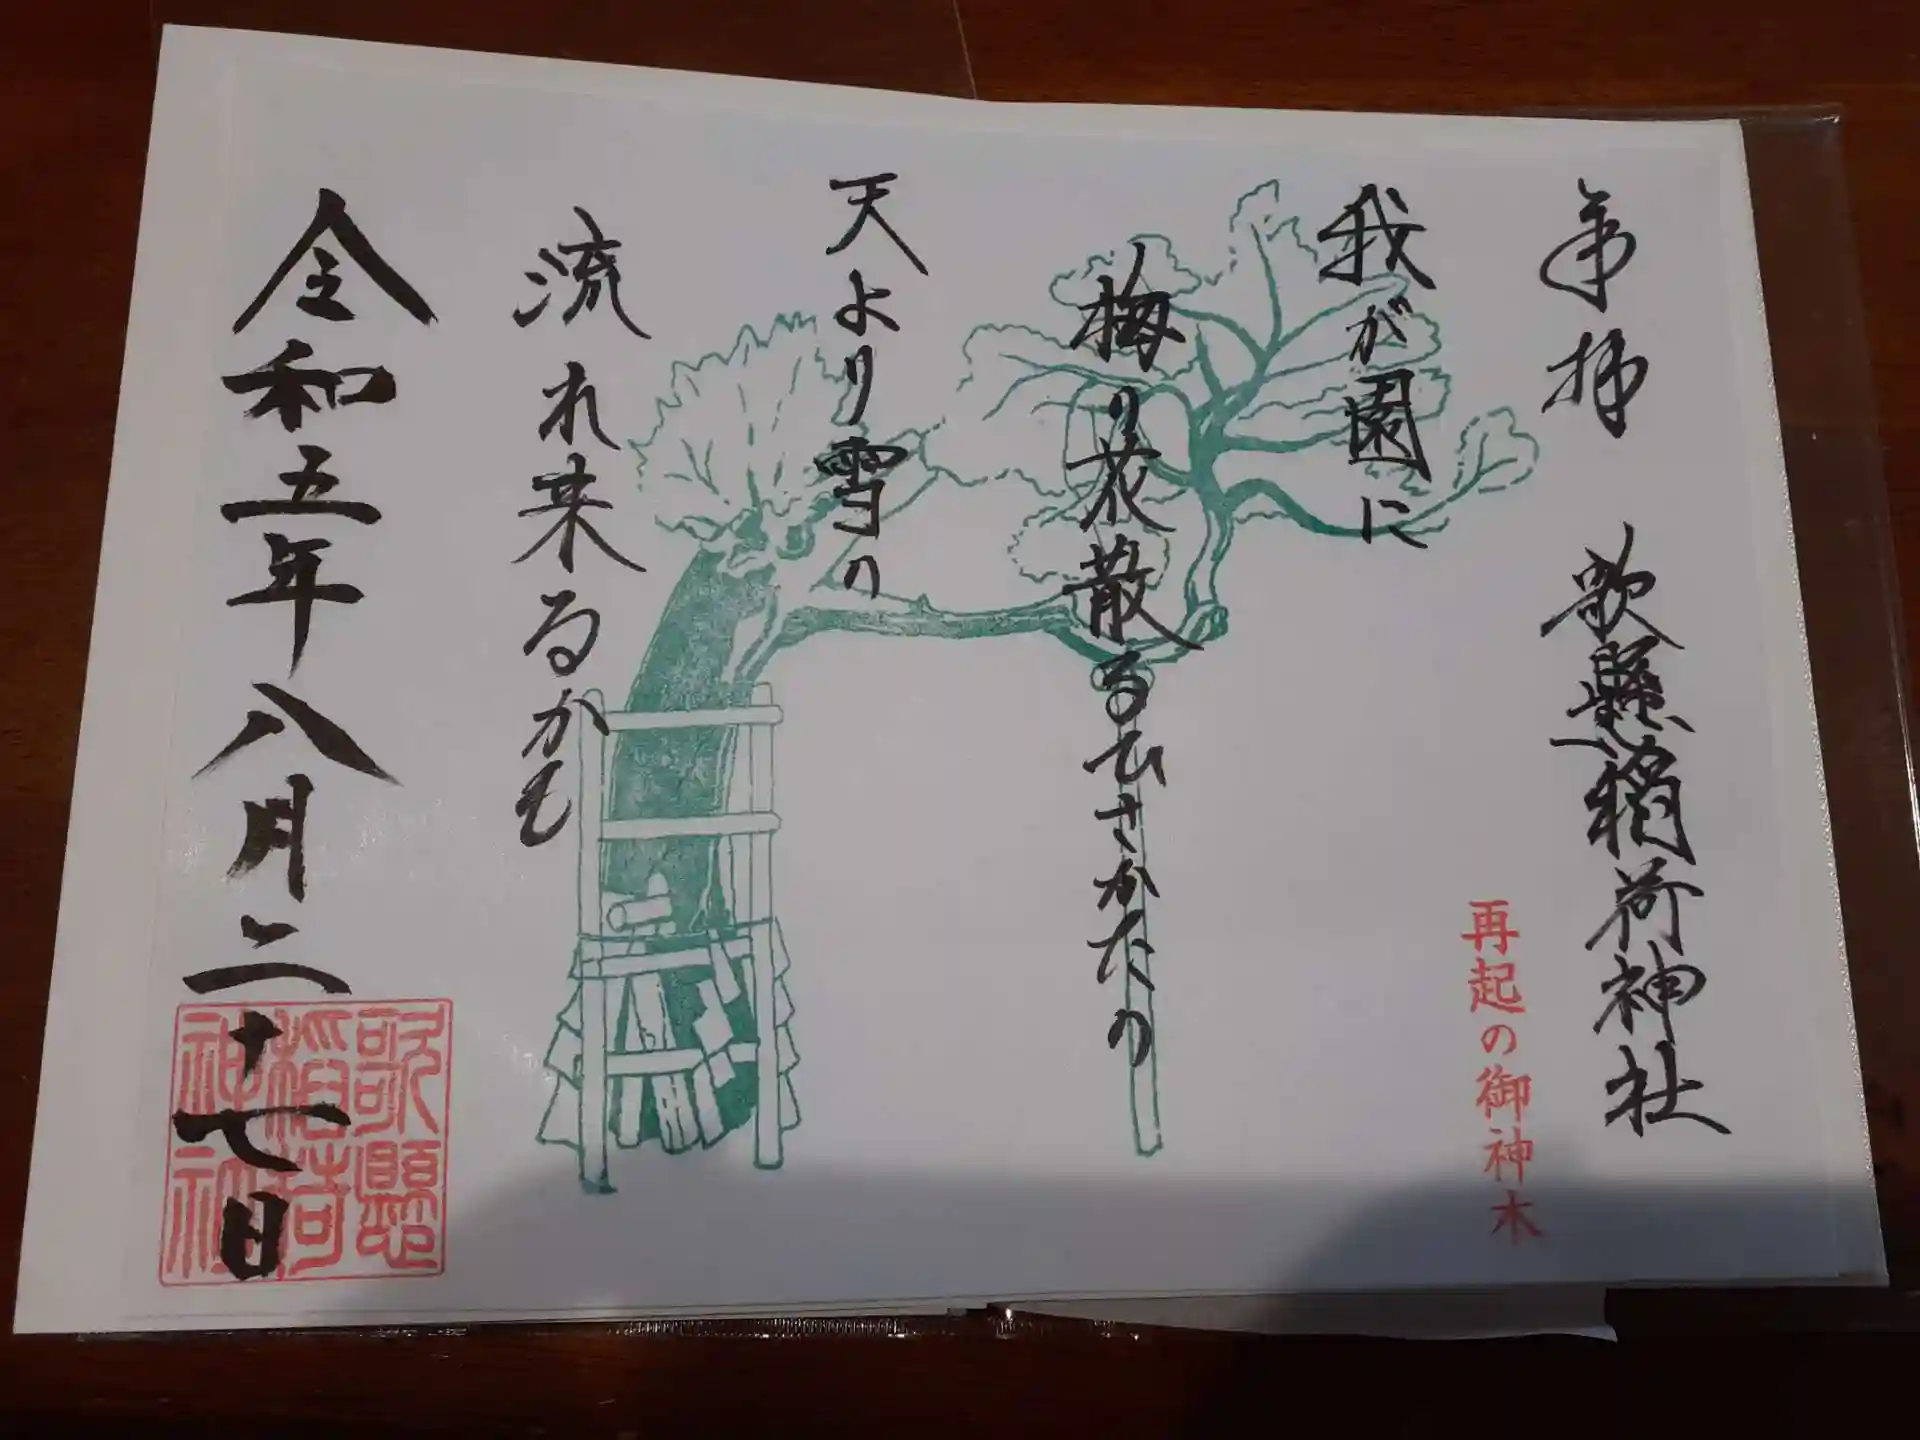 奉拝　歌懸稲荷神社
再起の御神木
我が園に
梅の花散るひさかたの
天より雪の
流れ来るかも
令和五年八月二十七日
歌懸
稲荷
神社